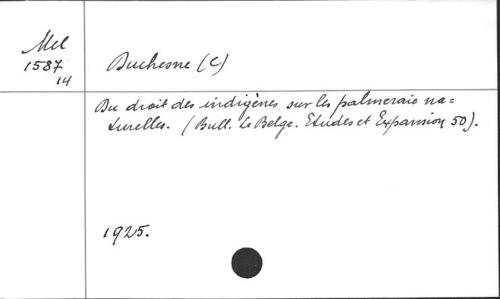 Mel
1587
14
Duchesne (C)
Du droit des indigènes sur les palmeraie na=
turelles. (Bull. Le Belge. Etudes et Expansion 50).
1925.